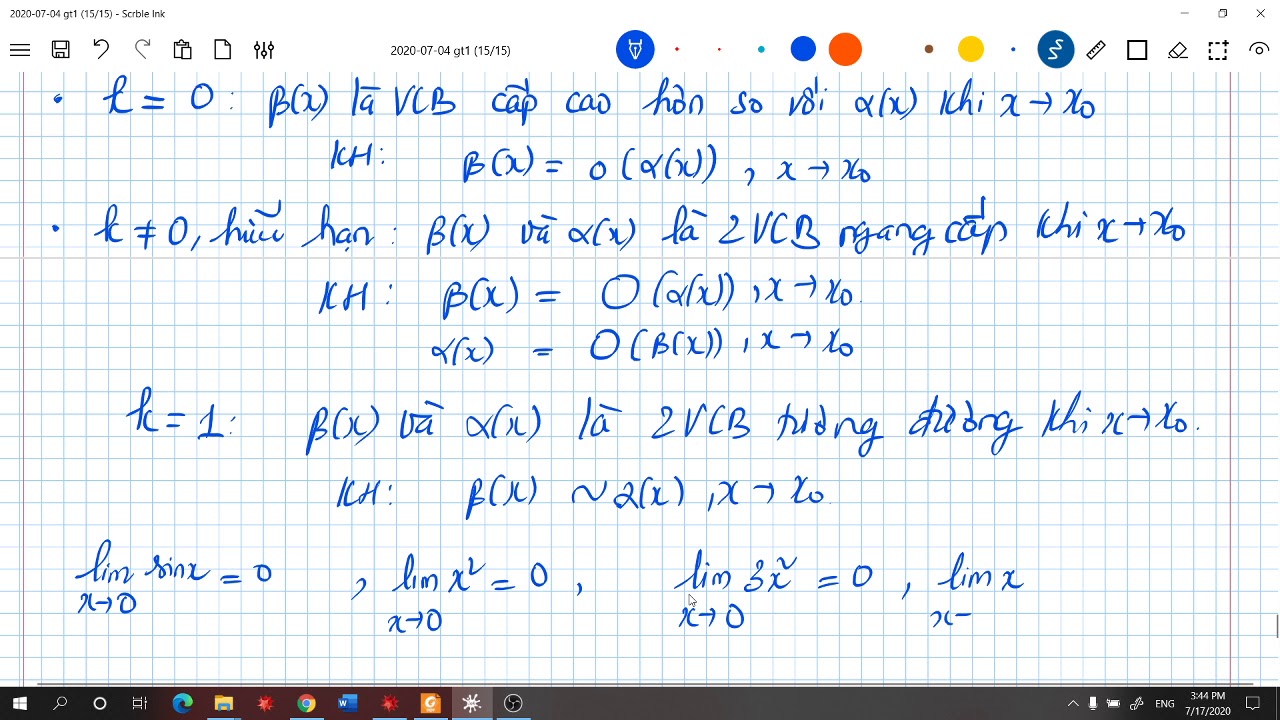 2020-07-04 gt1 (15/15) - Scrble Ink
2020-07-04 gt1 (15/15)
• k = 0 : β(x) là VCB cấp cao hơn so với α(x) khi x → x₀
KH: β(x) = o(α(x)) , x → x₀
• k ≠ 0, hữu hạn : β(x) và α(x) là 2 VCB ngang cấp khi x → x₀
KH: β(x) = O(α(x)) , x → x₀.
α(x) = O(β(x)) , x → x₀
k = 1: β(x) và α(x) là 2 VCB tương đương khi x → x₀.
KH: β(x) ~ α(x) , x → x₀.
lim sinx = 0 , lim x² = 0 , lim 3x² = 0 , lim x
x→0 x→0 x→0 x−
ENG
3:44 PM
7/17/2020